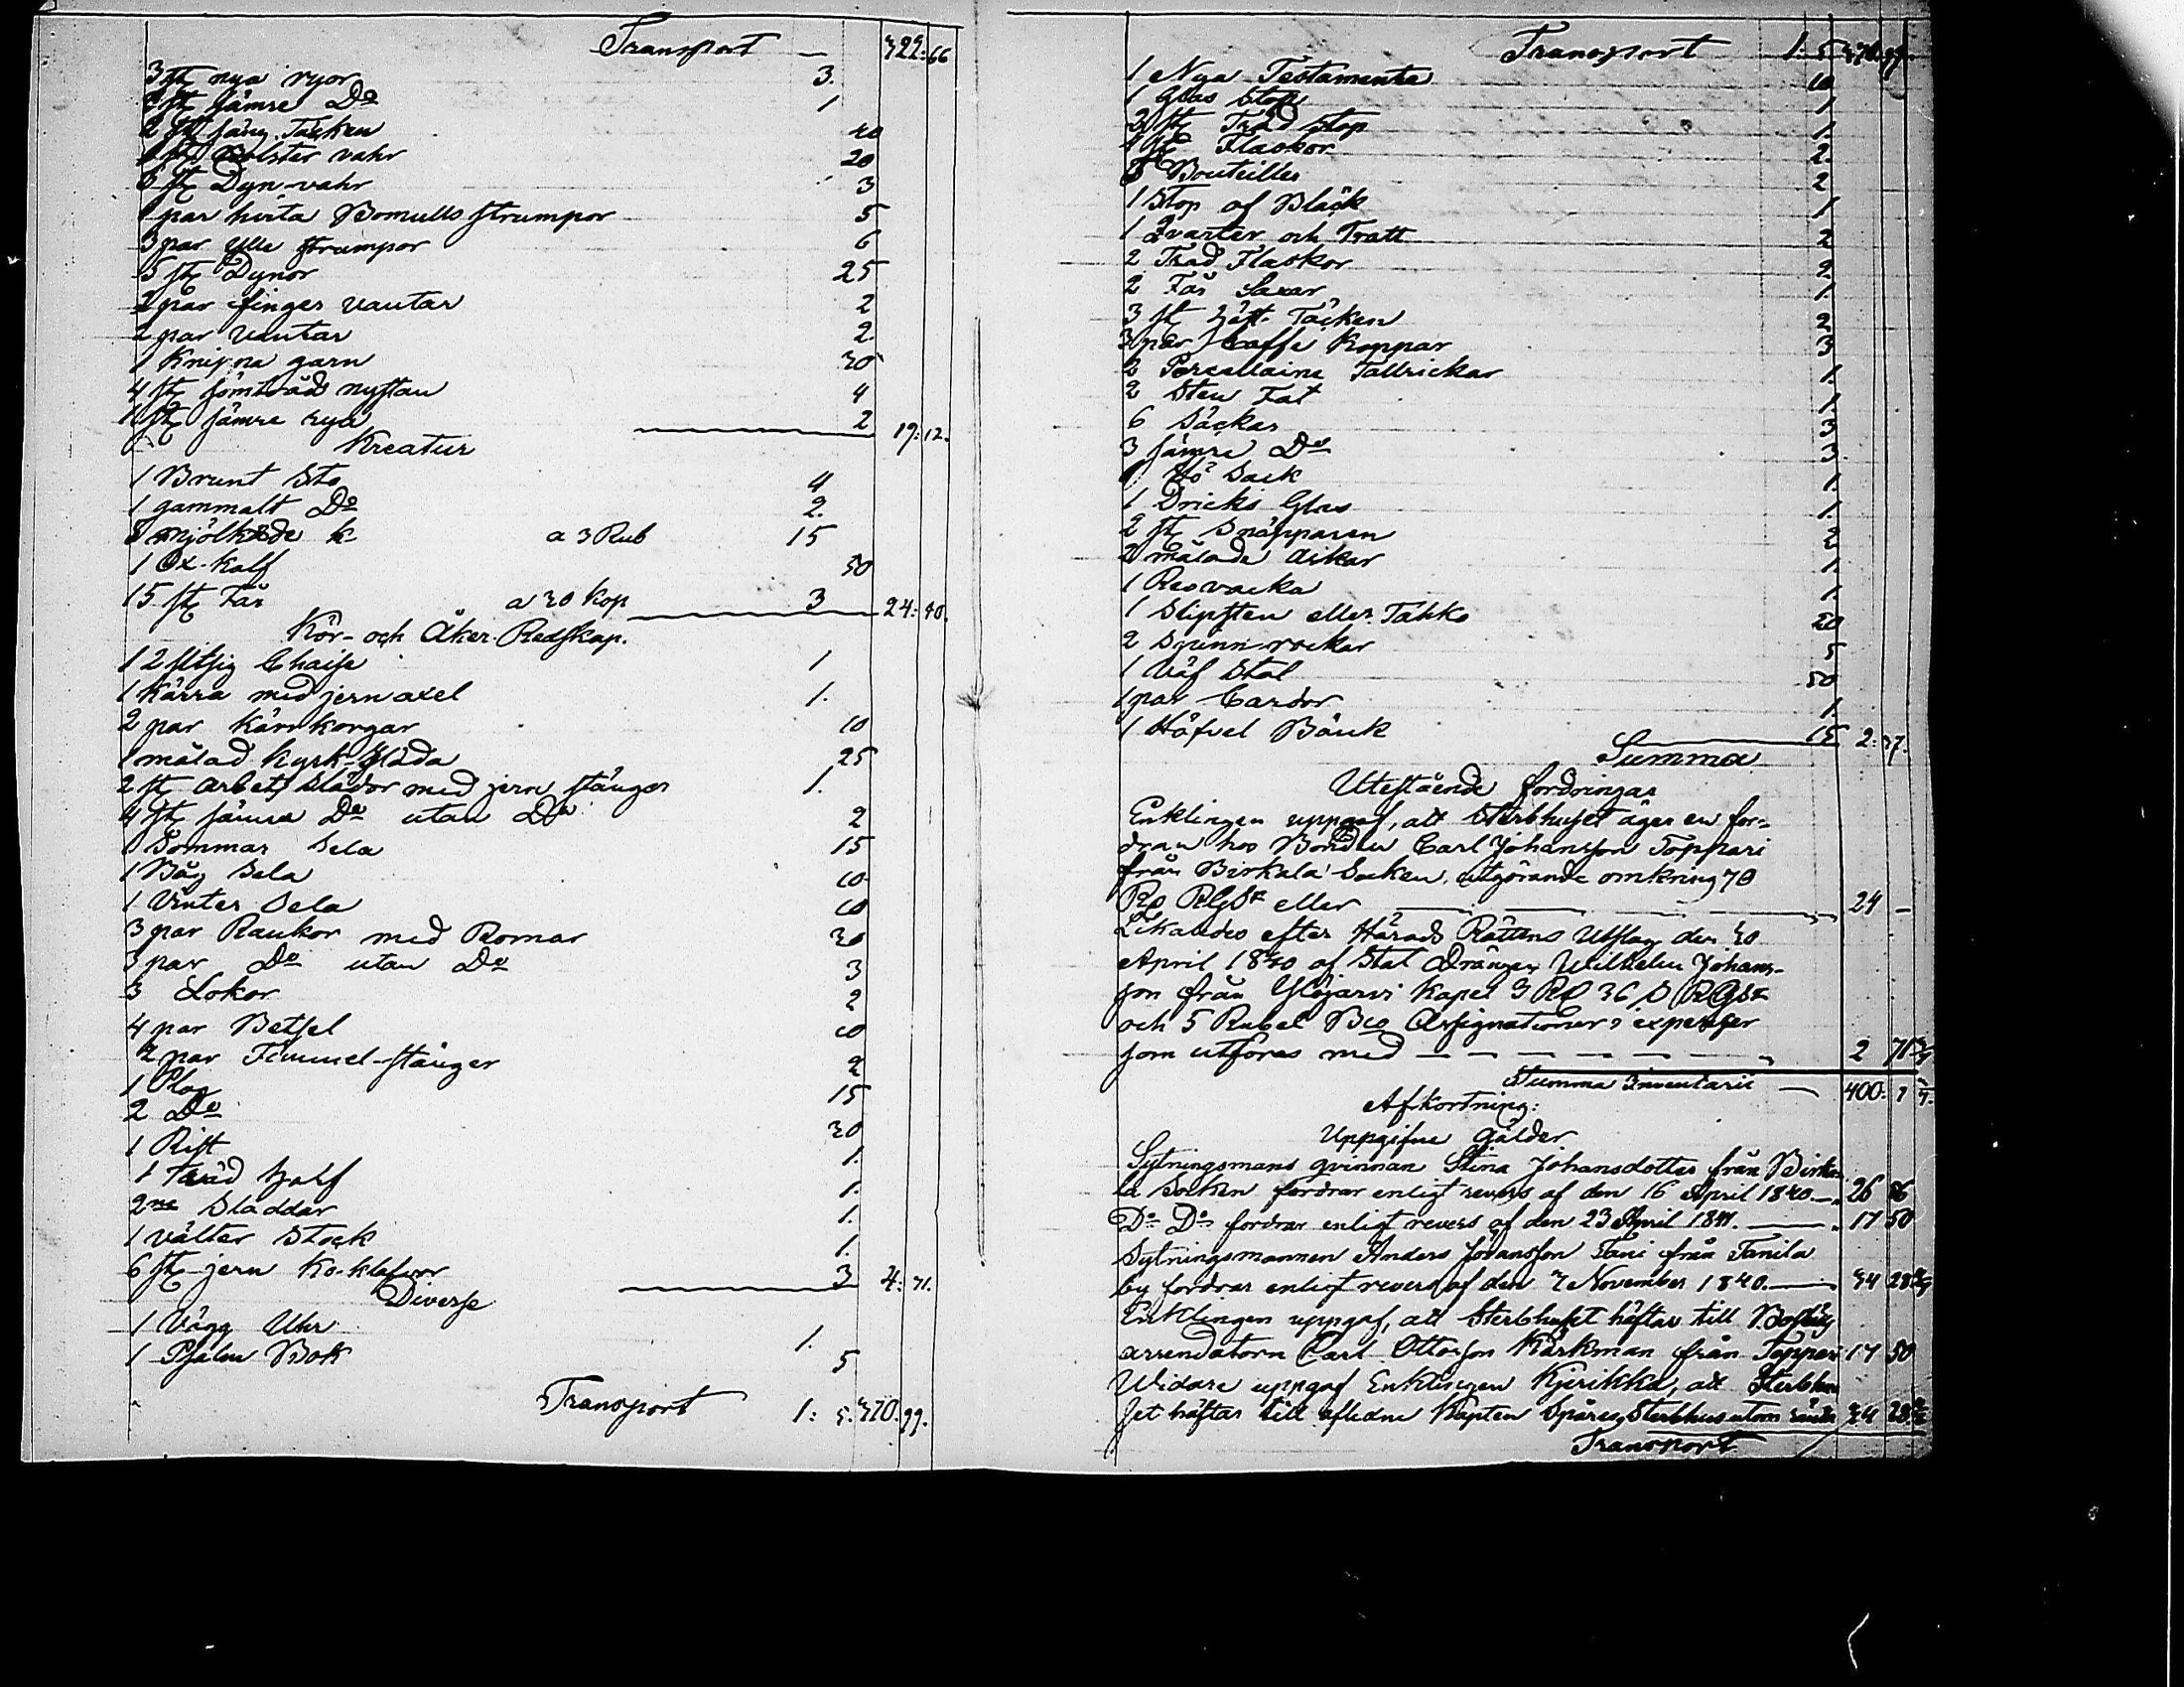 Transport — 322: 66
3 st nya ryor 3.
2 st sämre Do 1
2 st säng Täcken 40
1 st Bolster vahr 20
6 st Dyn-vahr 3
1 par hvita Bomulls strumpor 5
3 par Ylle strumpor 6
5 st Dynor 25
2 par finger vantar 2
2 par Vantar 2
1 Knippa garn 30
4 st sömtråds nystan 4
1 st sämre rya 2 19: 12.
Kreatur
1 Brunt Sto 4
1 gammalt Do 2.
5 mjölkande k a 3 Rub 15
1 Ox-kalf 50
15 st Får a 20 Kop 3 24: 40.
Kör- och Åker-Redskap.
1 2 sitsig Chaise 1
1 Kärra med jern axel 1.
2 par Kärrkorgar 10
1 målad Kyrk-släda 25
2 st arbets slädor med jern stänger 1.
4 st sämre Do utan Do 2
1 Sommar Sela 15
1 Båg Sela 10
1 Vinter Sela 10
3 par Rankor med Romar 30
3 par Do utan Do 3
3 Lokor 2
4 par Betsel 10
2 par Tömmel-stänger 2
1 Plog 15
2 Do 30
1 Rist 1.
1 Harf 1.
2ne Sladdar 1.
1 välter Stock 1.
6 st jern Ko-klafvor 3 4: 71.
Diverse
1 Vägg Uhr 1.
1 Psalm Bok 5
Transport 1: 5. 370. 99.
Transport 1: 5 370. 99.
1 Nya Testamente 10
1 Glas Stop 1
2 st Träd Stop 1.
4 st Flaskor 2.
5 Bouteiller 2
1 Stop af Bläck 1
1 Qvarter och Tratt 2
2 Träd Flaskor 2.
2 Får Saxar 1.
3 st Häst Täcken 2
3 par Caffe Koppar 3
2 Porcellaine Tallrickar 1.
2 Sten Fat 1.
6 Säckar 3
3 sämre Do 3.
1 Hö Säck 1.
1 Dricks Glas 1.
2 st Snäpparen 2
2 målade Askar 1.
1 Resvacka 1.
1 Slipsten eller Tahko 20
2 Spinn-rockar 5
1 Väf Stol 50
1 par Cardor 1.
1 Höfvel Bänk 15 2: 37.
Summa
Utestående fordringar
Enklingen uppgaf, att Sterbhuset äger en for-
dran hos Bonden Carl Johansson Toppari
från Birkala Socken, utgörande omkring 70
Ro RGds eller 24 —
Likaledes efter Härads Rättens Utslag den 30
April 1840 af Stat Drängen Wilhelm Johans-
son från Ylöjärvi Kapel 3 Ro 36 s RGds
och 5 Rubel Bco Assignationer i expenser
som utföras med — — — — — 2 71 3/7
Summa Inventarii — 400: 7 3/7.
Afkortning:
Uppgifne Gälder
Sytningsmans qvinnan Stina Johansdotter från Birka-
la Socken fordrar enligt revers af den 16 April 1840 — 26 86
Do Do fordrar enligt revers af den 23 April 1841. — 17 50
Sytningsmannen Anders Johansson Tani från Tanila
by fordrar enligt revers af den 7 November 1840. — 34 28 4/7
Enklingen uppgaf, att Sterbhuset häftar till
arrendatorn Carl Ottosson Kärkman från Toppari 17 50
Widare uppgaf Enklingen Kjerikka, att Sterbhu-
set häftar till aflidne Kapten Spåres Sterbhus utom ränta 34 28 4/7
Transport